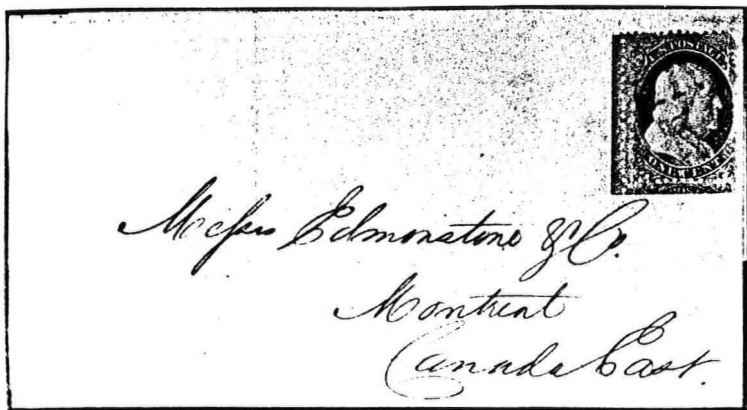 U.S. POSTAGE
ONE CENT
Messrs Edmonstone & Co.
Montreal
Canada East.